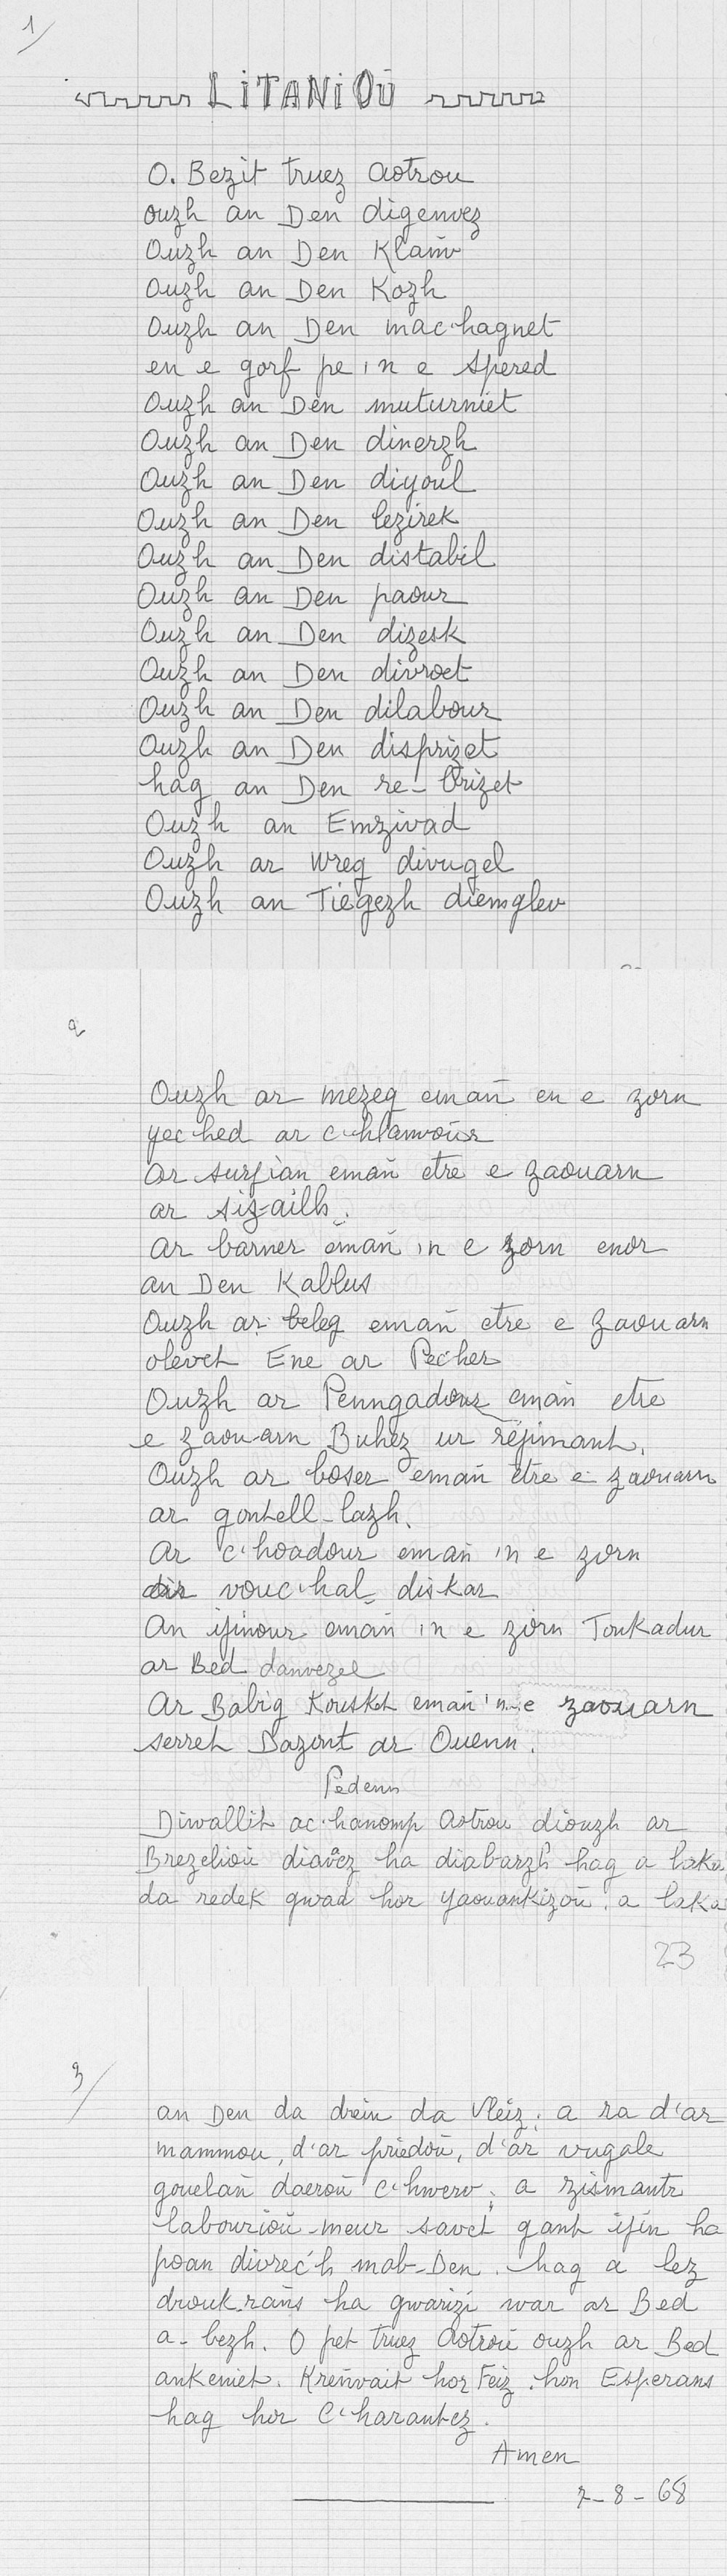 1/
LiTANiOÙ
O. Bezit truez Aotrou
ouzh an Den digenvez
Ouzh an Den Klañv
Ouzh an Den Kozh
Ouzh an Den mac'hagnet
en e gorf pe 'n e spered
Ouzh an Den muturniet
Ouzh an Den dinerzh
Ouzh an Den diyoul
Ouzh an Den lezirek
Ouzh an Den distabil
Ouzh an Den paour
Ouzh an Den dizesk
Ouzh an Den divroet
Ouzh an Den dilabour
Ouzh an Den disprizet
hag an Den re-brizet
Ouzh an Emzivad
Ouzh ar wreg divugel
Ouzh an Tiegezh diemglev
2
Ouzh ar mezeg emañ en e zorn
yec'hed ar c'hlanvour
Ar surjian emañ etre e zaouarn
ar sizailh.
Ar barner emañ 'n e zorn enor
an Den Kablus
Ouzh ar beleg emañ etre e zaouarn
olevet Ene ar Pec'her
Ouzh ar Penngadour emañ etre
e zaouarn Buhez ur rejimant.
Ouzh ar boser emañ etre e zaouarn
ar gontell-lazh.
Ar c'hoadour emañ 'n e zorn
vouc'hal diskar
An ijinour emañ 'n e zorn Tonkadur
ar Bed danvezel
Ar Babig Kousket emañ 'n e zaouarn
serret Dazont ar Ouenn.
Pedenn
Diwallit ac'hanomp Aotrou diouzh ar
Brezelioù diavêz ha diabarzh hag a laka
da redek gwad hor yaouankizoù. a laka
23
3/
an Den da drein da Vleiz; a ra d'ar
mammou, d'ar priedoù, d'ar vugale
gouelañ daeroù c'hwerv; a zismantr
labourioù-meur savet gant ijin ha
poan divrec'h mab-Den. hag a lez
droukrañs ha gwarizi war ar Bed
a-bezh. O pet truez Aotroù ouzh ar Bed
ankeniet. Kreñvait hor Feiz. hon Esperans
hag hor C'harantez.
Amen
7-8-68